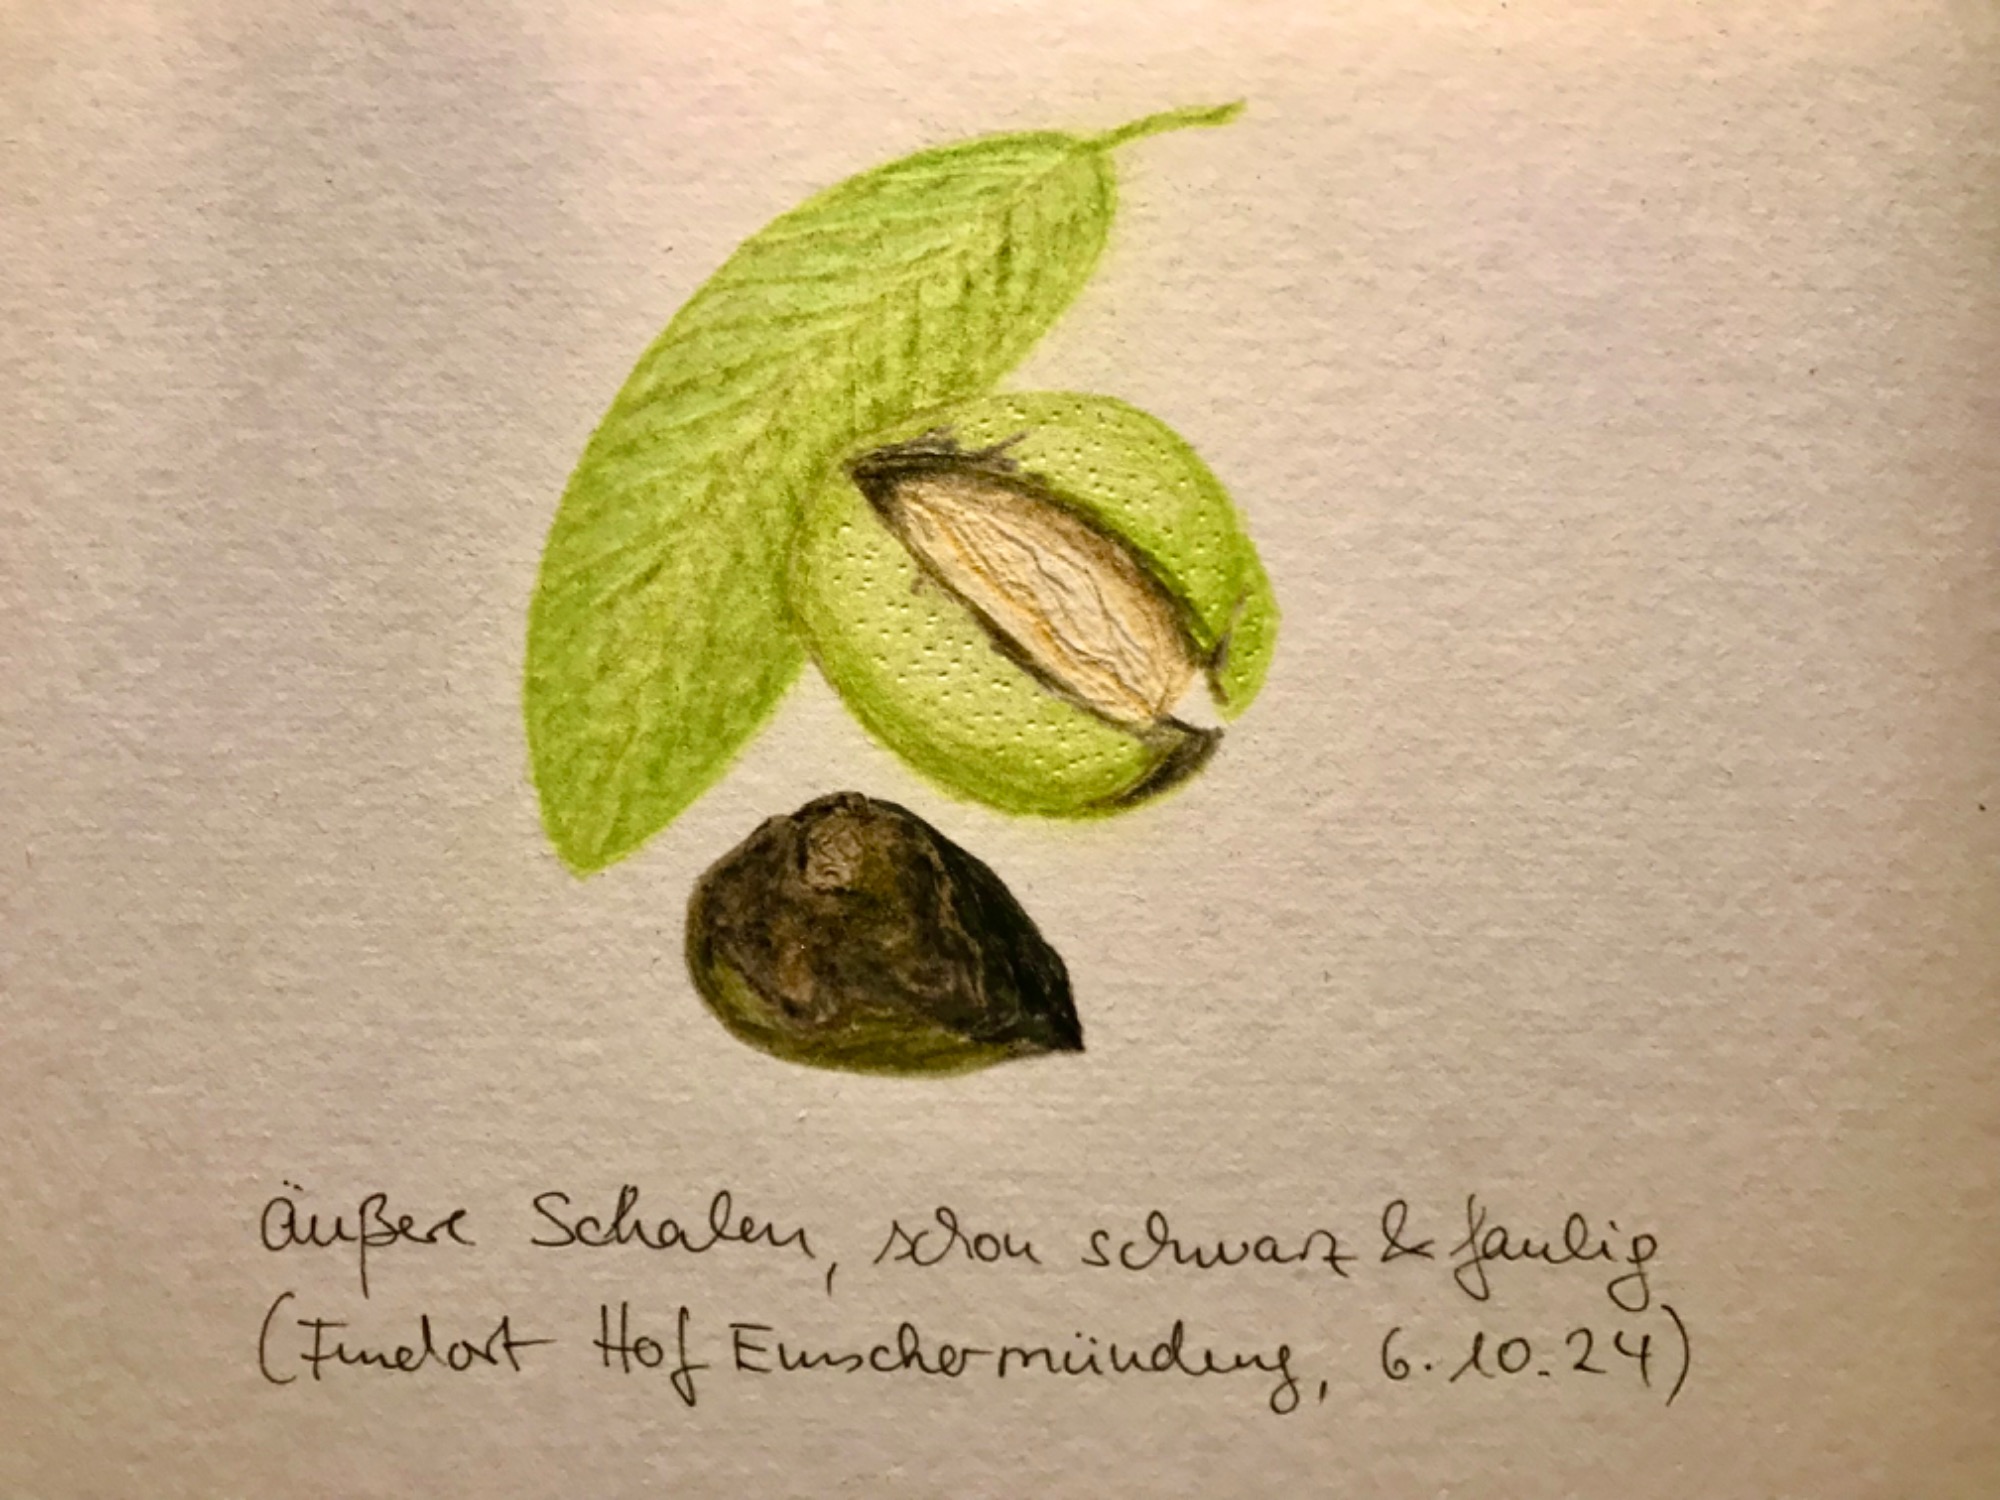 äußere Schalen, schon schwarz & faulig
(Fundort Hof Emschermündung, 6.10.24)